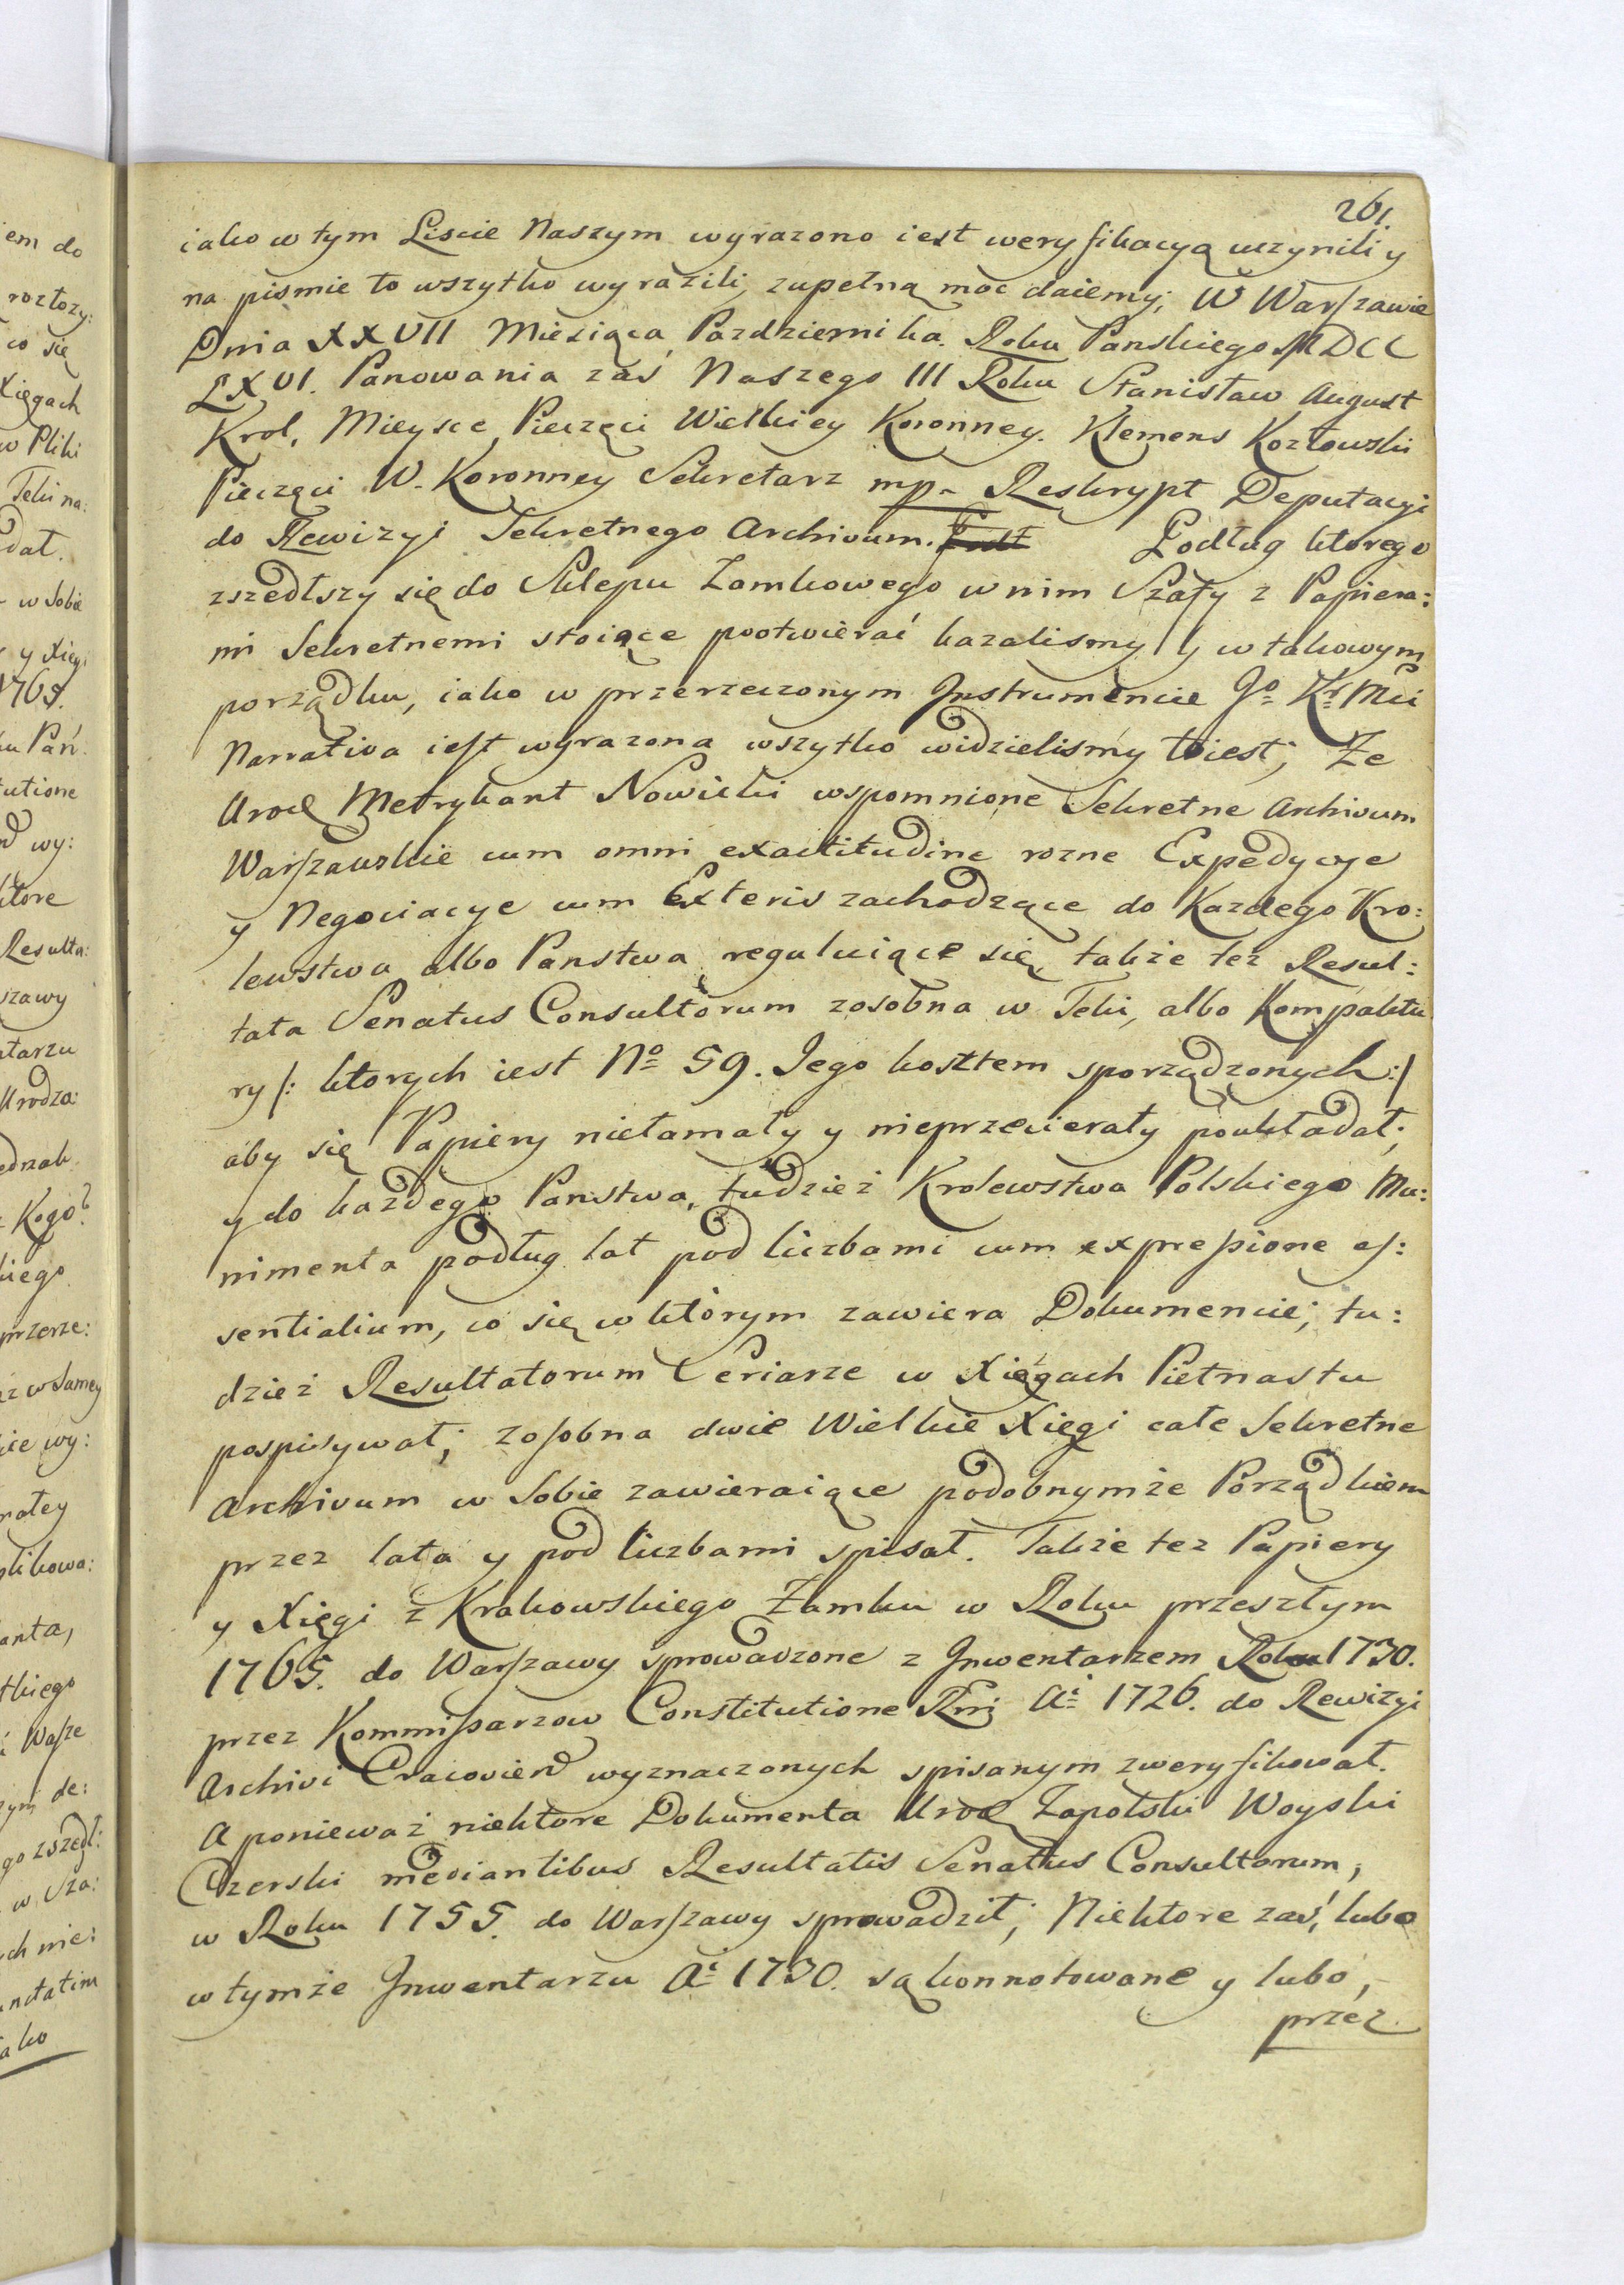 261.
iako w tym Liscie Naszym wyrazono iest weryfikacyą uczynili y
na pismie to wszytko wyrazili, zupełną moc daiemy; W Warszawie
Dnia XXVII Miesiąca Pazdziernika. Roku Panskiego MDCC
LXVI. Panowania zaś Naszego III Roku Stanisław August
Krol, Mieysce Pieczęci Wielkiey Koronney. Klemens Kozłowski
Pieczęci W. Koronney Sekretarz mp. Reskrypt Deputacyi
do Rewizyi Sekretnego Archivum. Podług ktorego
zszedłszy się do Sklepu Zamkowego w nim Szafy z Papiera:
mi Sekretnemi stoiące pootwierać kazalismy y w takowym
porządku, iako w przerzeczonym Instrumencie Jº Kr Mci
Narrativa iest wyrazona wszytko widzielismy toiest; Ze
Urod Metrykant Nowicki wspomnione Sekretne Archivum
Warszawskie cum omni exactitudine rozne Expedycye
y Negociacye cum Exteris zachodzące do Kazdego Kro:
lewstwa albo Panstwa reguluiące się, takze tez Resul:
tata Senatus Consultorum zosobna w Teki, albo Kompaktu
ry /: ktorych iest Nº 59. Jego kosztem sporządzonych :/
aby się Papiery niełamały y nieprzecierały poukładał;
y do kazdego Panstwa, tudziez Krolewstwa Polskiego Mu:
nimenta podług lat pod liczbami cum expressione es:
sentialium, co się w ktorym zawiera Dokumencie; tu:
dzież Resultatorum Seriarze w Xięgach Piętnastu
pospisywał; zosobna dwie Wielkie Xięgi całe Sekretne
Archivum w Sobie zawieraiące podobnymże Porządkiem
przez lata y pod liczbami spisał. Także tez Papiery
y Xięgi z Krakowskiego Zamku w Roku przeszłym
1765. do Warszawy sprowadzone z Inwentarzem Roku 1730.
przez Kommissarzow Constitutione Rni Ai 1726. do Rewizyi
Archivi Cracovien wyznaczonych spisanym zweryfikował.
A ponieważ niektore Dokumenta Urod Zapolski Woyski
Czerski mediantibus Resultatis Senatus Consultorum,
w Roku 1755. do Warszawy sprowadził; Niektore zaś, lubo
w tymże Inwentarzu Ai 1730. są konnotowane y lubo,
przez